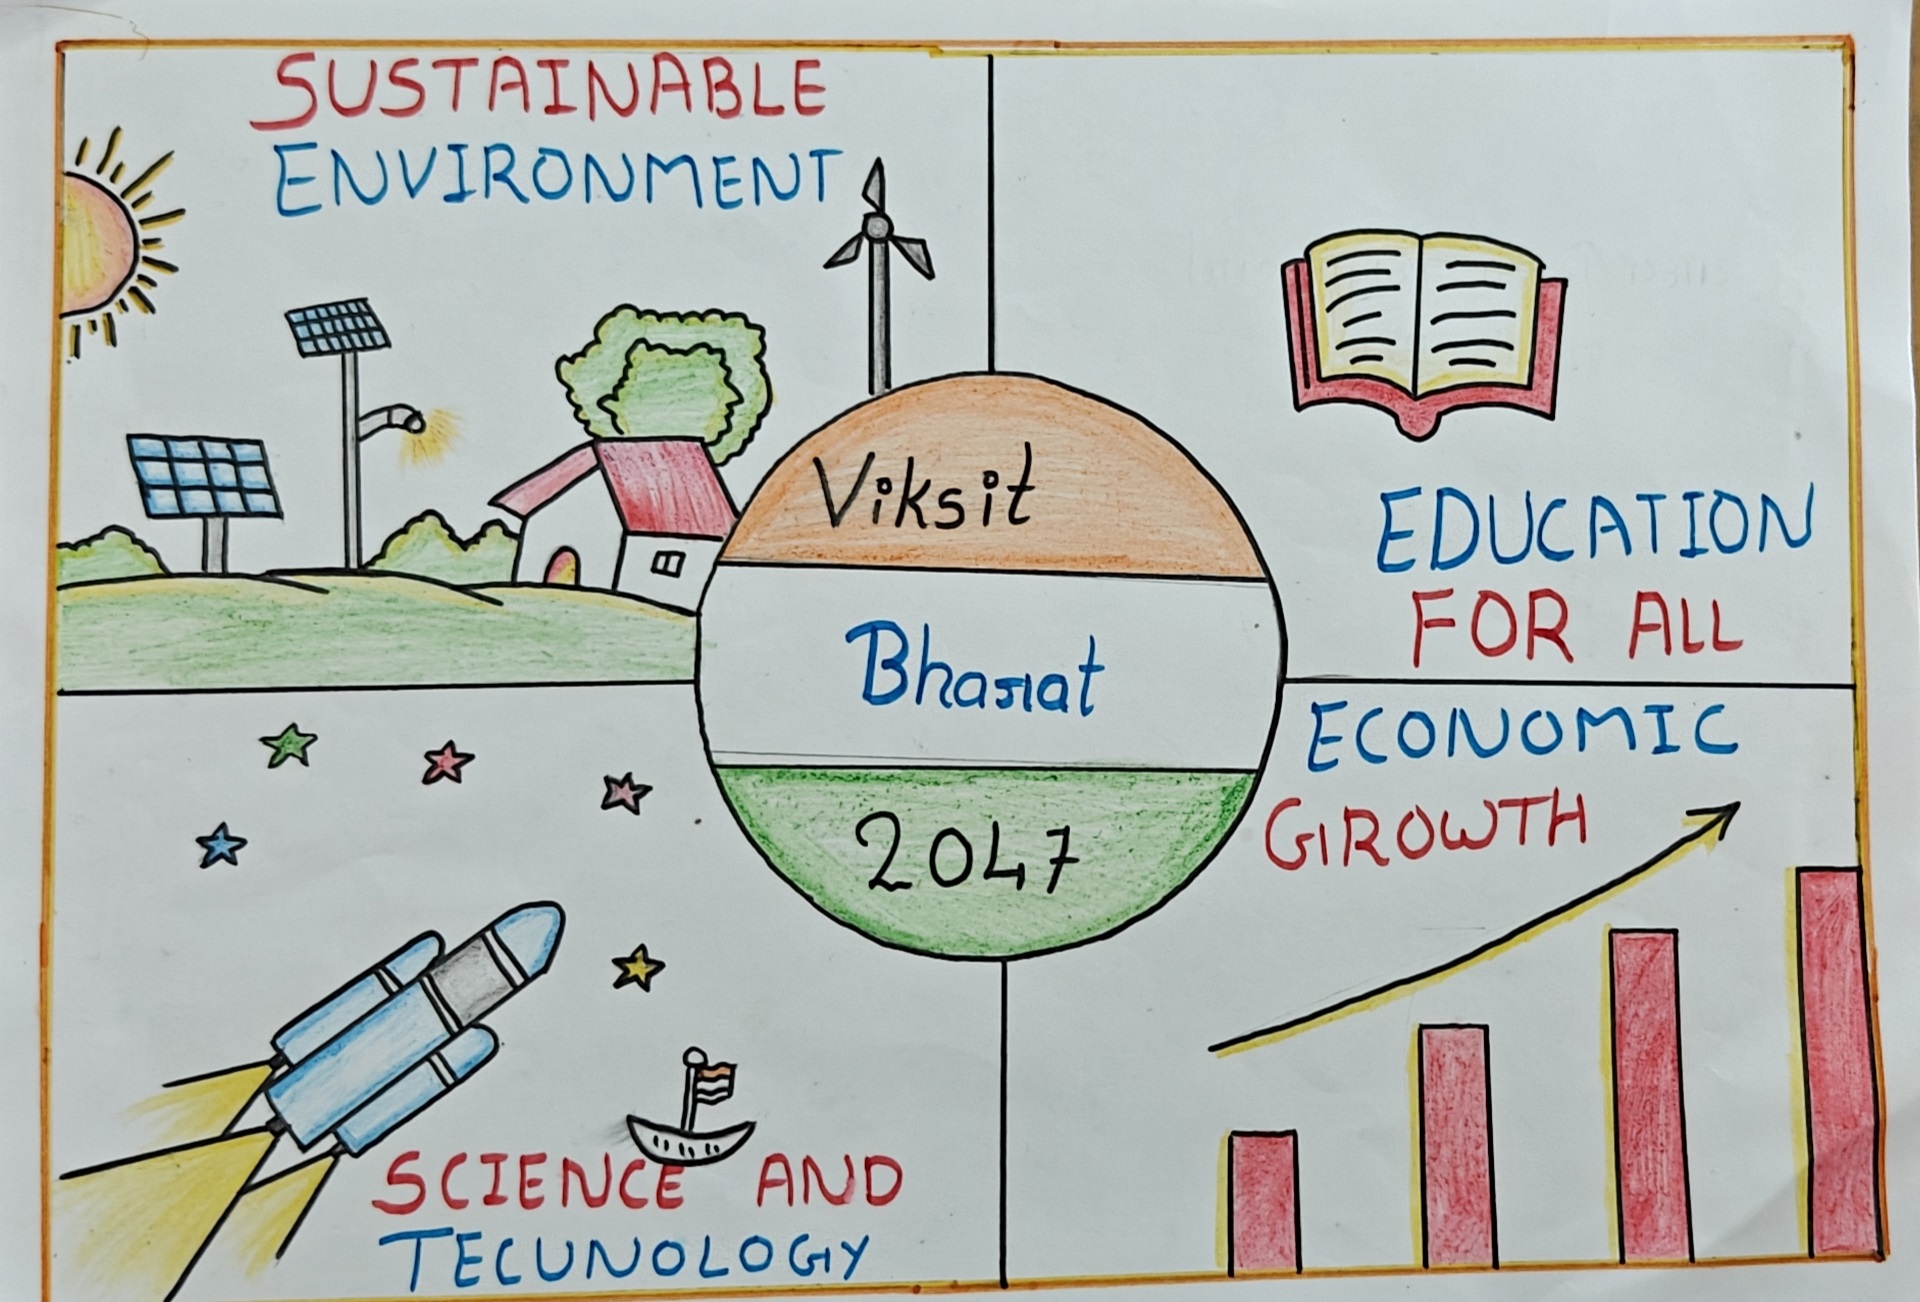 SUSTAINABLE
ENVIRONMENT
EDUCATION
FOR ALL
Viksit
Bharat
2047
SCIENCE AND
TECUNOLOGY
ECONOMIC
GROWTH